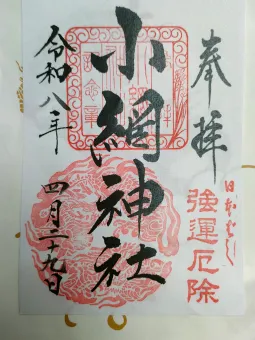 奉拝
日本橋
強運厄除
小網神社
令和八年
四月二十九日